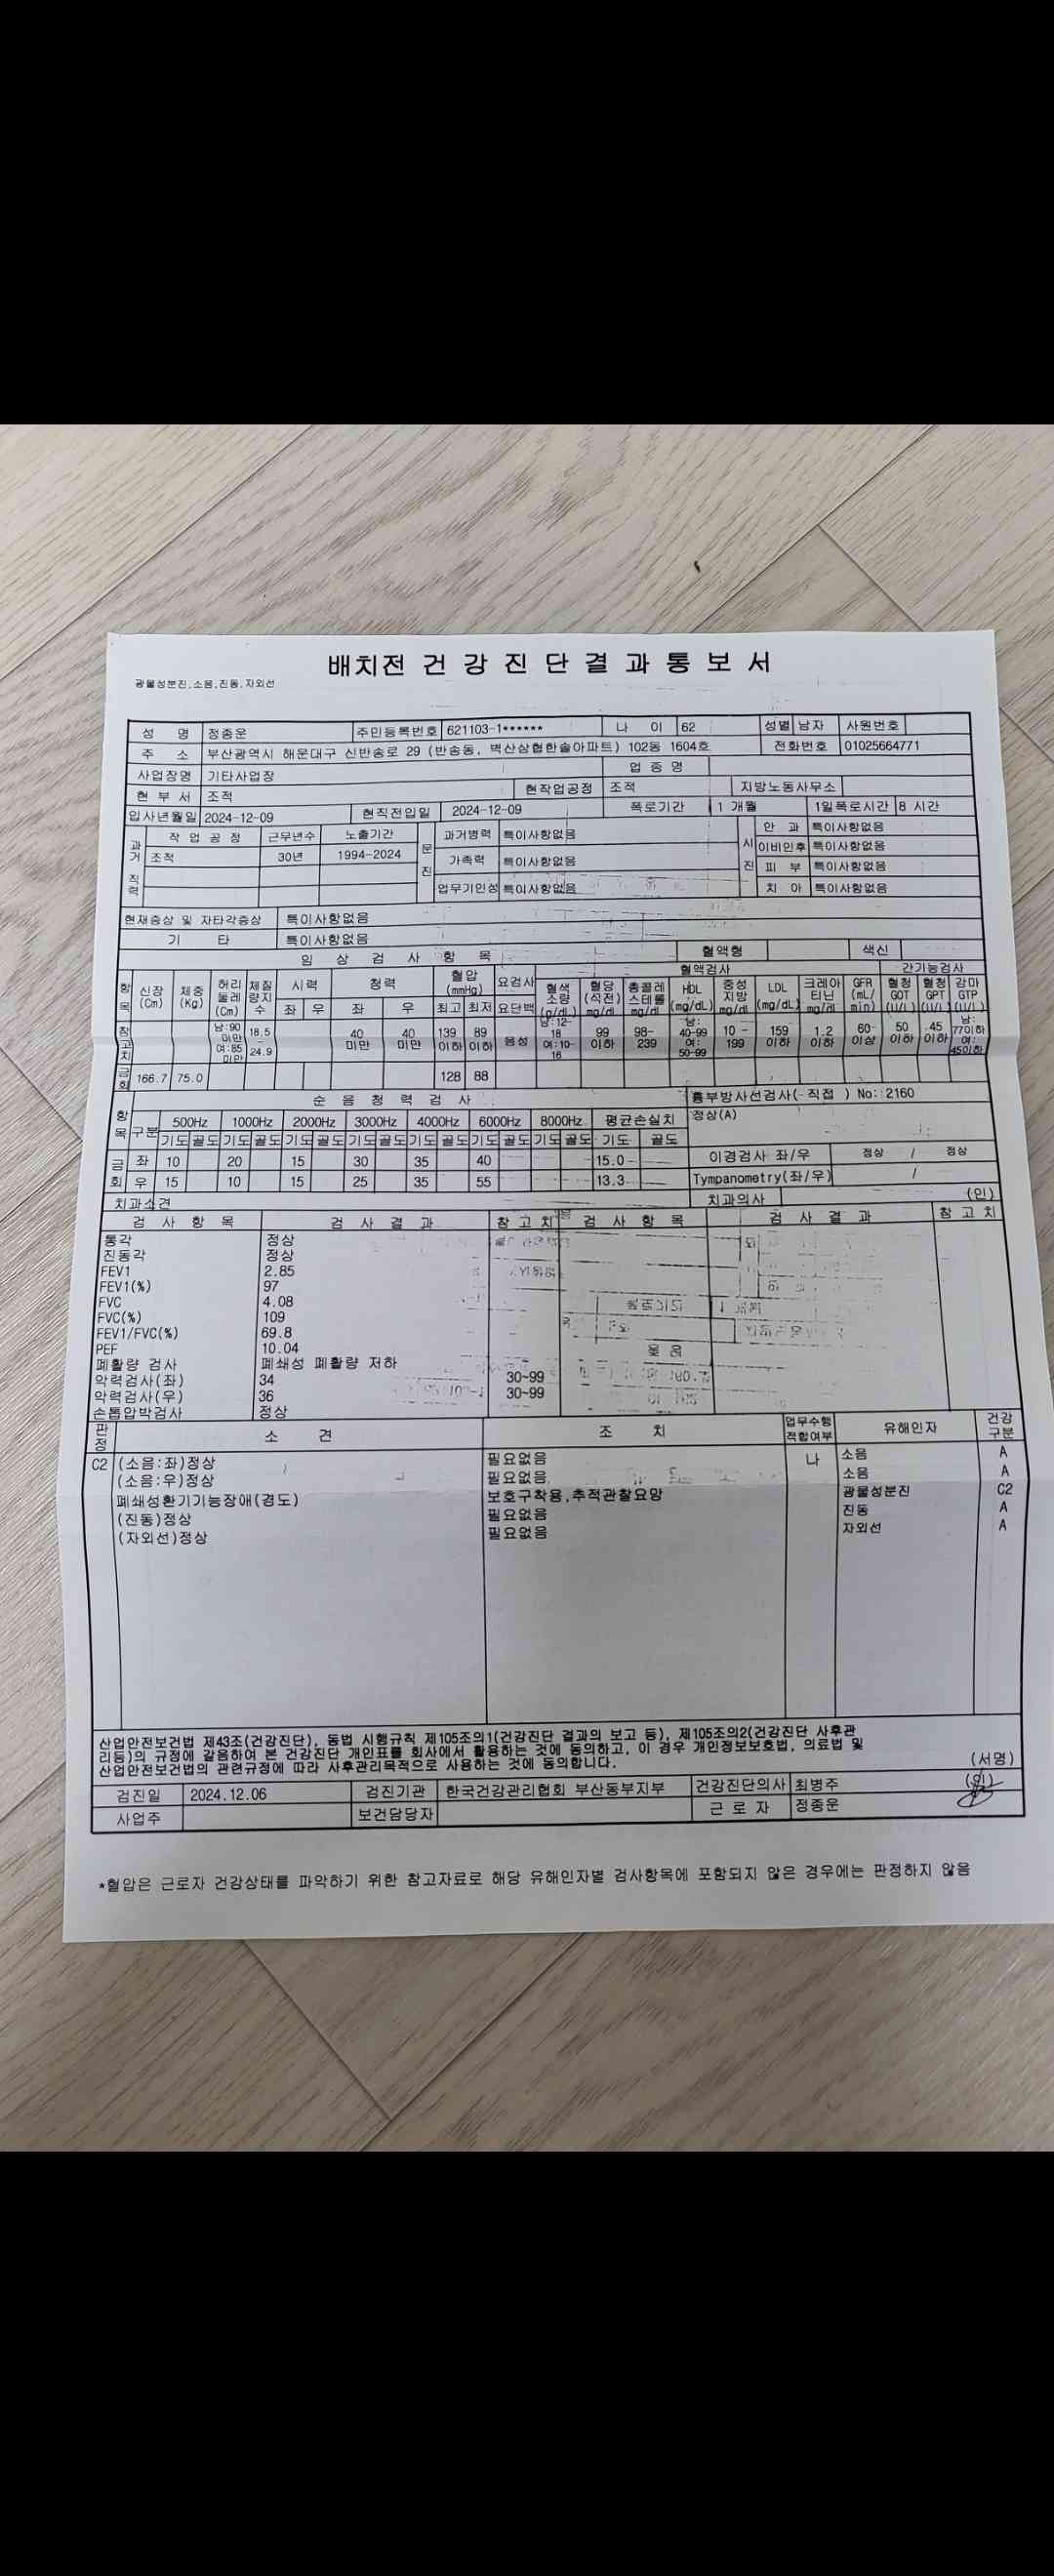 배치전 건 강 진 단 결 과 통 보 서
광물성분진,소음,진동,자외선
성 명 정종운 주민등록번호 621103-1****** 나 이 62 성별 남자 사원번호
주 소 부산광역시 해운대구 신반송로 29 (반송동, 벽산삼협한솔아파트) 102동 1604호 전화번호 01025664771
사업장명 기타사업장 업 종 명
현 부 서 조적 현작업공정 조적 지방노동사무소
입사년월일 2024-12-09 현직전입일 2024-12-09 폭로기간 1 개월 1일폭로시간 8 시간
과거직력 작 업 공 정 근무년수 노출기간 문진 과거병력 특이사항없음 시진 안 과 특이사항없음
조적 30년 1994-2024 가족력 특이사항없음 이비인후 특이사항없음
피 부 특이사항없음
업무기인성 특이사항없음 치 아 특이사항없음
현재증상 및 자타각증상 특이사항없음
기 타 특이사항없음
임 상 검 사 항 목 혈액형 색신
항목 신장(Cm) 체중(Kg) 허리둘레(Cm) 체질량지수 시력 청력 혈압(mmHg) 요검사 혈액검사 간기능검사
좌 우 좌 우 최고 최저 요단백 혈색소량(g/dL) 혈당(식전)mg/dl 총콜레스테롤mg/dl HDL(mg/dL) 중성지방mg/dl LDL(mg/dL) 크레아티닌mg/dl GFR(mL/min) 혈청GOT(U/L) 혈청GPT(U/L) 감마GTP(U/L)
참고치 남:90미만 여:85미만 18.5-24.9 40미만 40미만 139이하 89이하 음성 남:12-16 여:10-16 99이하 98-239 남:40-99 여:50-99 10-199 159이하 1.2이하 60-이상 50이하 45이하 남:77이하 여:45이하
금회 166.7 75.0 128 88
순 음 청 력 검 사 흉부방사선검사( 직접 ) No: 2160
항목 구분 500Hz 1000Hz 2000Hz 3000Hz 4000Hz 6000Hz 8000Hz 평균손실치 정상(A)
기도 골도 기도 골도 기도 골도 기도 골도 기도 골도 기도 골도 기도 골도 기도 골도
금회 좌 10 20 15 30 35 40 15.0 이경검사 좌/우 정상 / 정상
우 15 10 15 25 35 55 13.3 Tympanometry(좌/우) /
치과소견 치과의사 (인)
검 사 항 목 검 사 결 과 참 고 치 검 사 항 목 검 사 결 과 참 고 치
통각 정상
진동각 정상
FEV1 2.85
FEV1(%) 97
FVC 4.08
FVC(%) 109
FEV1/FVC(%) 69.8
PEF 10.04
폐활량 검사 폐쇄성 폐활량 저하
악력검사(좌) 34 30~99
악력검사(우) 36 30~99
손톱압박검사 정상
판정 소 견 조 치 업무수행적합여부 유해인자 건강구분
C2 (소음:좌)정상 필요없음 나 소음 A
(소음:우)정상 필요없음 소음 A
폐쇄성환기기능장애(경도) 보호구착용,추적관찰요망 광물성분진 C2
(진동)정상 필요없음 진동 A
(자외선)정상 필요없음 자외선 A
산업안전보건법 제43조(건강진단), 동법 시행규칙 제105조의1(건강진단 결과의 보고 등), 제105조의2(건강진단 사후관
리등)의 규정에 갈음하여 본 건강진단 개인표를 회사에서 활용하는 것에 동의하고, 이 경우 개인정보보호법, 의료법 및
산업안전보건법의 관련규정에 따라 사후관리목적으로 사용하는 것에 동의합니다. (서명)
검진일 2024.12.06 검진기관 한국건강관리협회 부산동부지부 건강진단의사 최병주 (인)
사업주 보건담당자 근 로 자 정종운
*혈압은 근로자 건강상태를 파악하기 위한 참고자료로 해당 유해인자별 검사항목에 포함되지 않은 경우에는 판정하지 않음